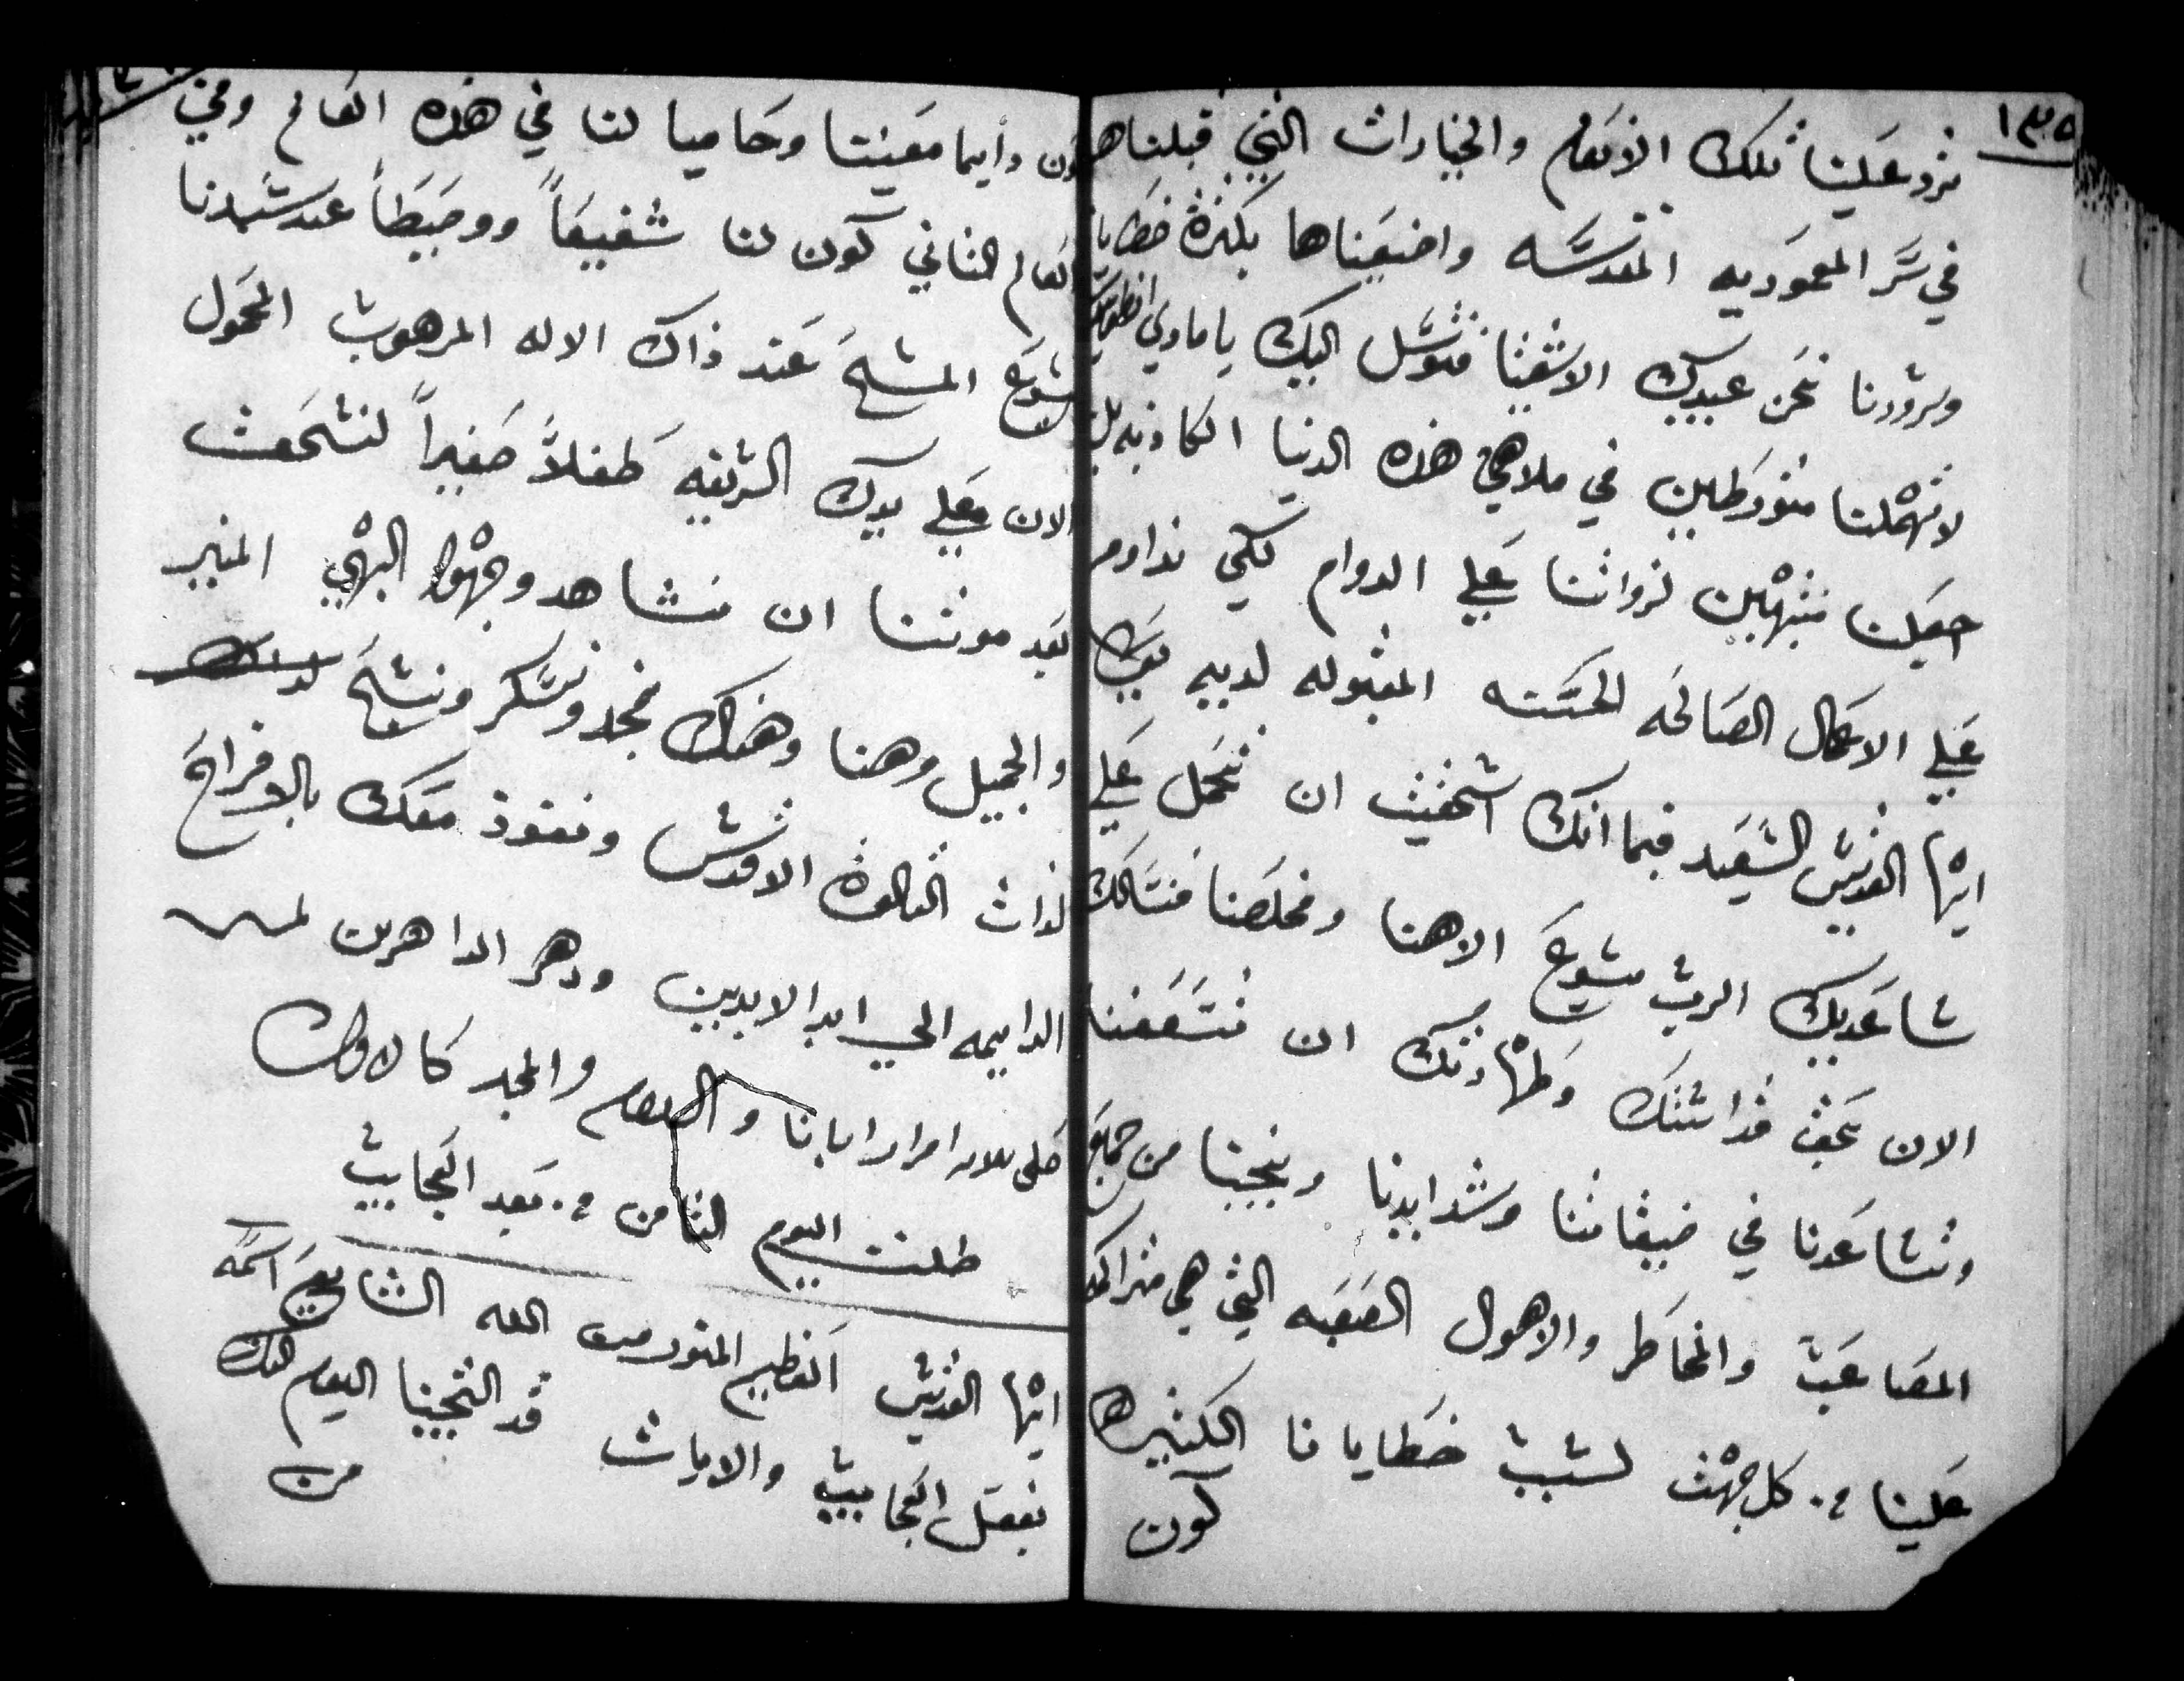 ١٣٥
ترد علينا تلك الانعام والخيارات التي قبلناها
في سَّر المعموديه المقدسَّه واضيعَناها بكثرة خطايا
وشرورنا نحَن عبيدك الاشقيا فنتوسَّل اليك يا ماري انطونيوس
لا تهْملنا متورطين في ملاهي هذه الدنيا الكاذبه بل
اجعَلنا منتبهْين لذواتنا عَلي الدوام لكي نداوم
عَلي الاعمال الصَالحَه الحسَّنه المقبوله لديه تعَالي
ايهْا القديسَّ السَّعَيد فبما انك استحقيت ان تحَمل عَلي
ساعَديك الرب يسَوعَ الاهنا ومخلصَنا فنسَّالك
الان بحَق قداستك وطهْارتك ان تسَّعَفنا
وتساعَدنا في ضيقاتنا وشدايدنا وتنجينا من جميعَ
المصَاعَب والمخاطر والاهوال الصَعَبه التي هي متراكمه
عَلينا من كل جهْت لسبب خطايانا الكثيره
كون
كون دايما معَينا وحَاميا لنا في هذه العَالم وفي
العَالم الثاني كون لنا شفيعَاً ووسَيطَاً عند سَّيدنا
يسوعَ المسيحَ عَند ذاك الاله المرهوب المحمَول
الان عَلي يديك الشريفه طفلاً صَغيراً لنستحَق
بعَد موتنا ان نشاهد وجهْه البهْي المنير
والجميل وهنا وهناك نمجد ونشكر ونسبحَ
لذات الثالوث الاقدس ونفوز معَك بالافراحَ
الدايمه الي ابد الابدين ودهر الداهرين
صلي ثلاثه امرار ابانا والسلام والمجد كالاول
طلبت اليوم الثامن من بَعد العَجايب
ايهْا القديس العَظيم المتورس الله الشايعَ اسمَه
بفعَل العَجايب والايات قد التجينا اليوم اليك
من